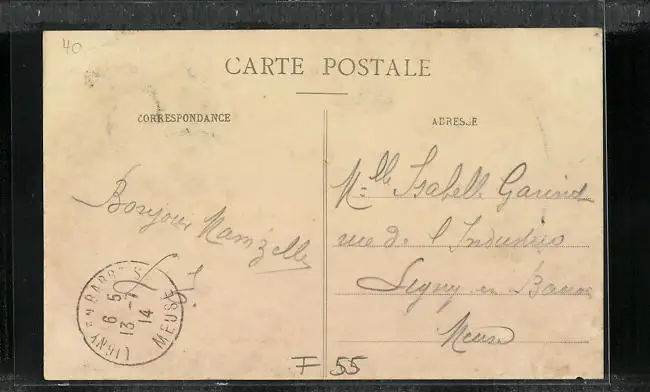 40
CARTE POSTALE
CORRESPONDANCE
ADRESSE
Bonjour Mamzelle
Mlle Isabelle
rue de l'Industrie
Ligny en Barrois
Meuse
LIGNY EN BARROIS
6 5
13 -7
14
MEUSE
F 55